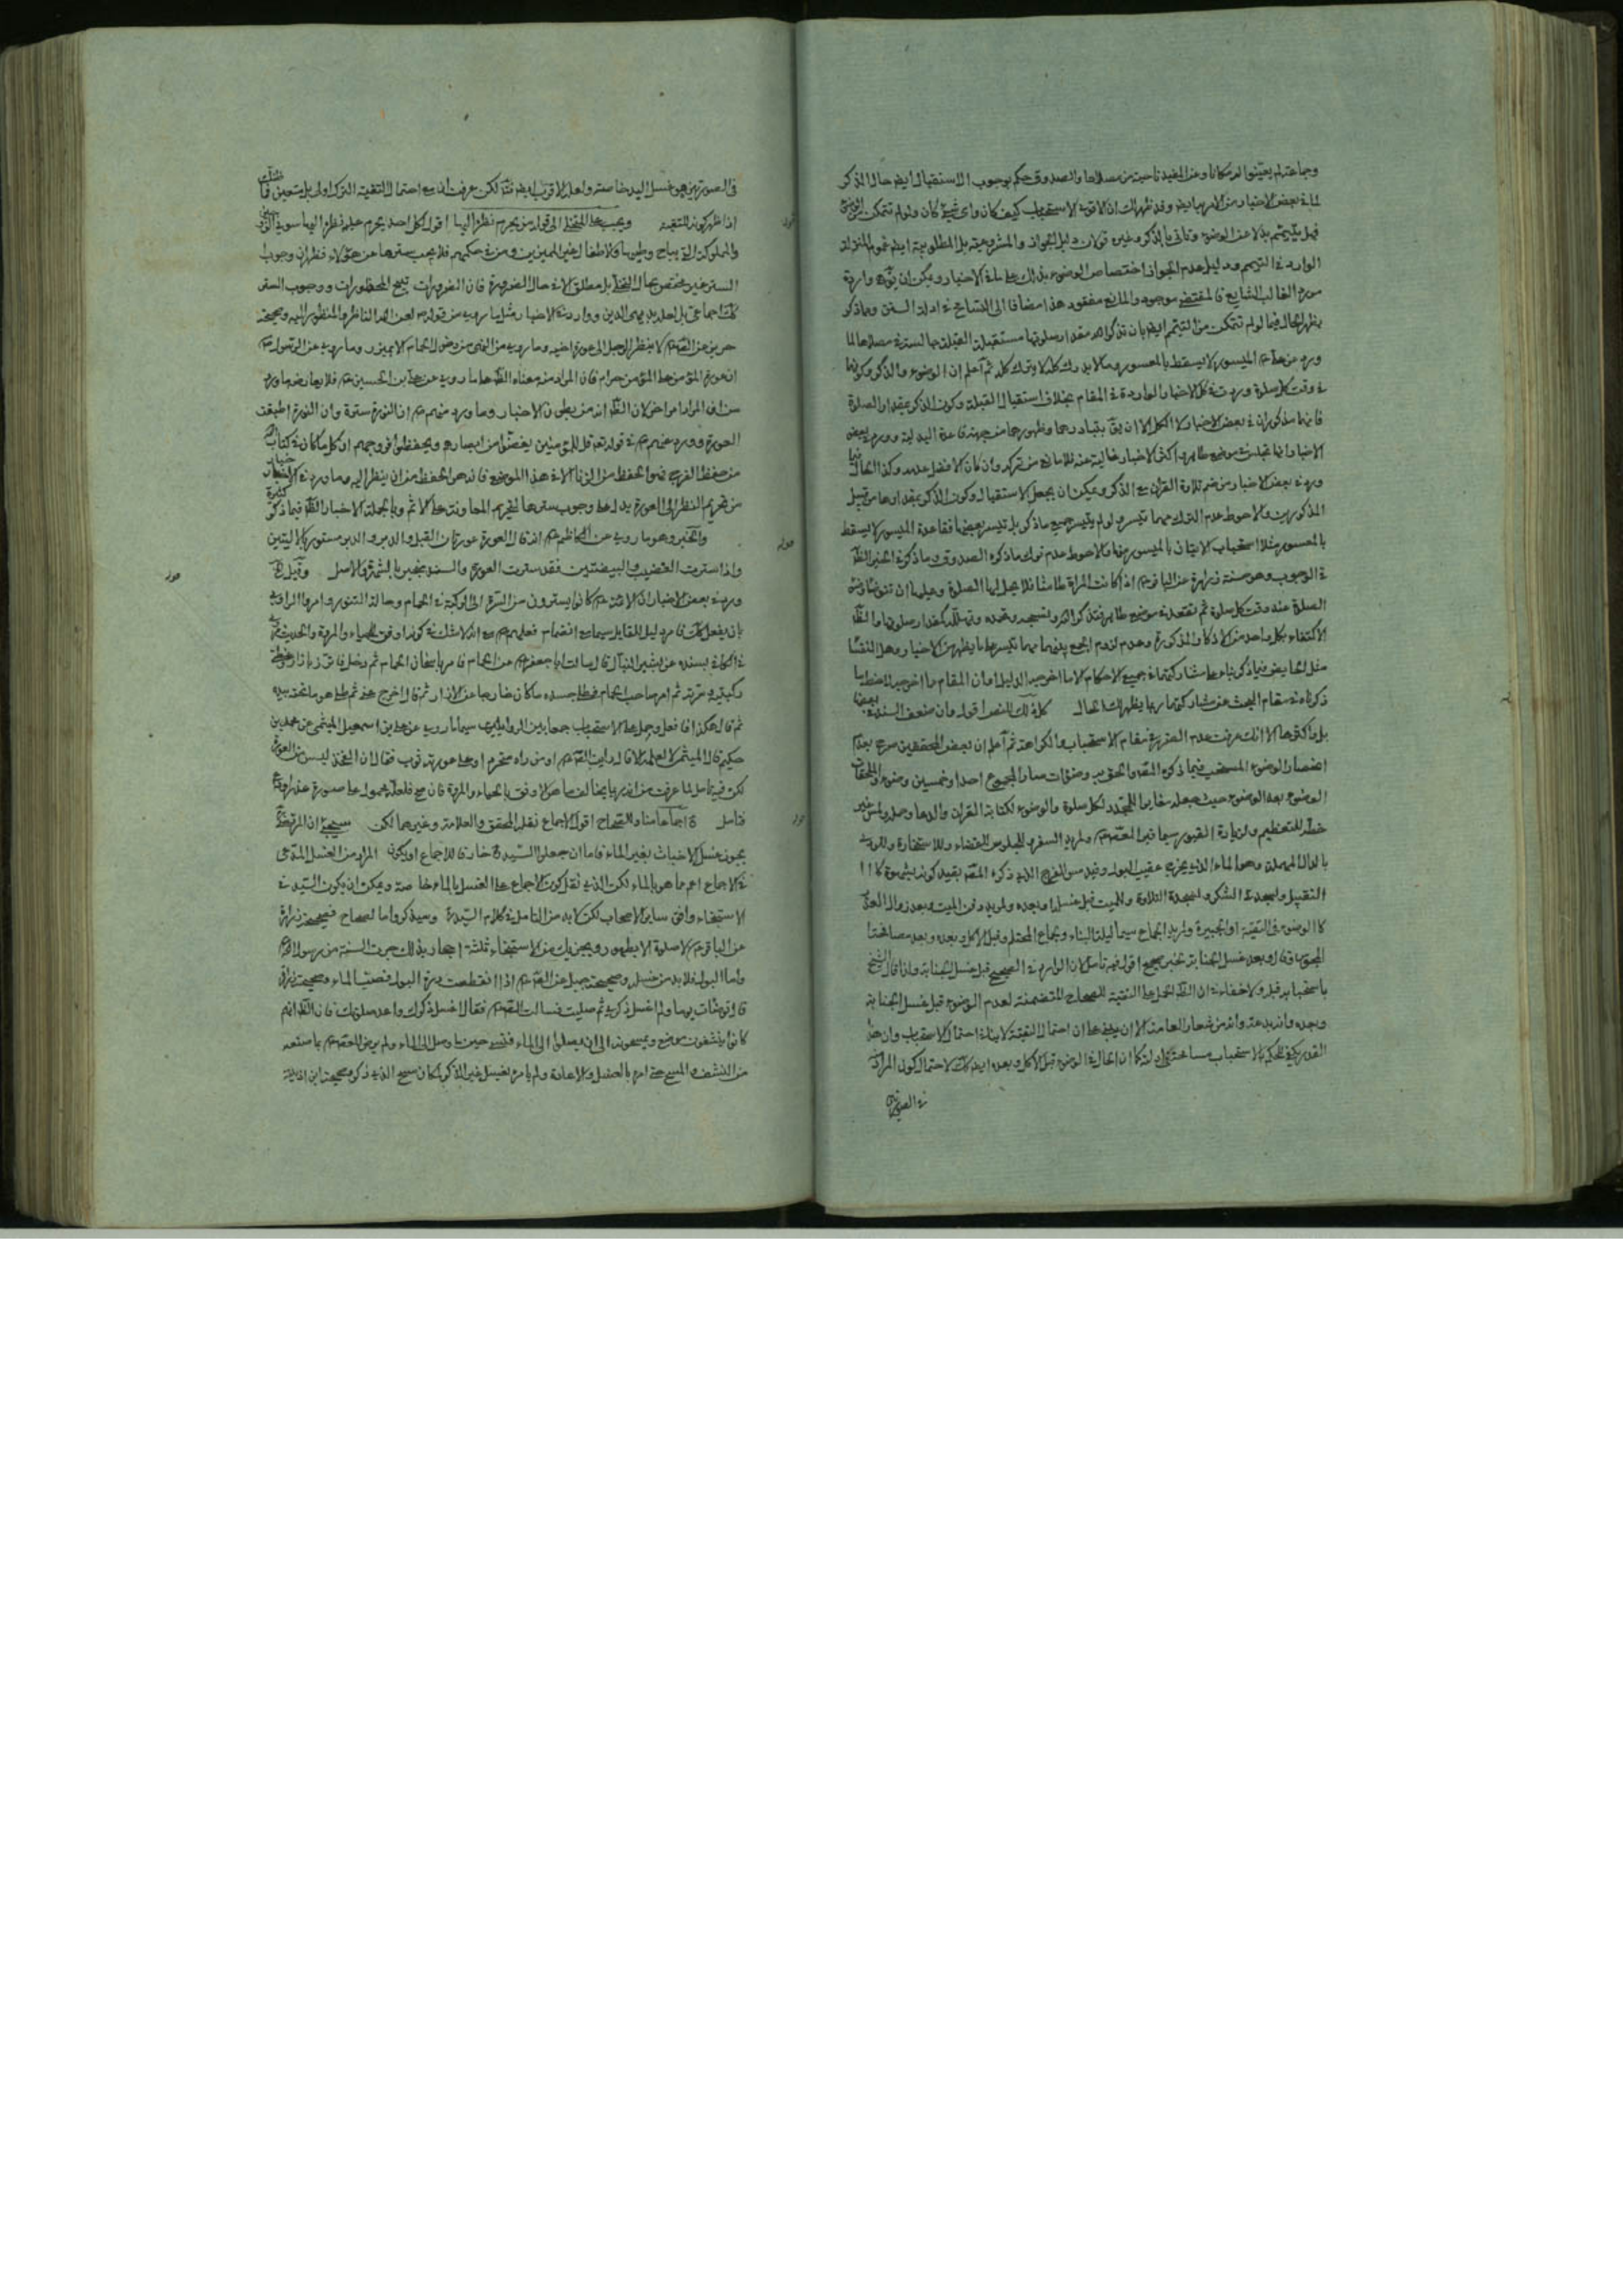 وجماعة لم يعينوا له مكانا وعن المفيد ناحية من مصلاها والصدوق حكم بوجوب الاستقبال ايضا حال الذكر
لما في بعض الاخبار من الامر بها ايضا وقد ظهر لك ان الاقوى الاستحباب كيف كان واى شيء كان ولو لم تتمكن من الوضوء
فهل يتيمم بدلا عن الوضوء وتأتي بالذكر وغيره قولان دليل الجواز والمشروعية بل المطلوبية ايضا عموم المنزلة
الوارد في التيمم ودليل عدم الجواز اختصاص الوضوء بذلك على ما في الاخبار ويمكن ان يوجه واردة
مورد الغالب الشايع فالمقتضى موجود والمانع مفقود هذا مضافا الى التسامح في ادلة السنن ومما ذكر
يظهر الحال فيما لو لم تتمكن من التيمم ايضا بان تذكر الله مقدار صلوتها مستقبلة القبلة جالسة في مصلاها لما
ورد عن علي ع الميسور لا يسقط بالمعسور وما لا يدرك كله لا يترك كله ثم اعلم ان الوضوء والذكر وكونهما
في وقت كل صلوة وردت في كل الاخبار الواردة في المقام بخلاف استقبال القبلة وكون الذكر بمقدار الصلوة
فانهما مذكوران في بعض الاخبار لا الكل الا ان يق بتبادرهما وظهورهما من جهة قاعدة البدلية وورد في بعض
الاخبار انها تجلس في موضع طاهر واكثر الاخبار خالية عنه فلا مانع من تركه وان كان الافضل عدمه وكذا الحال فيما
ورد في بعض الاخبار من ضم تلاوة القران مع الذكر ويمكن ان يجعل الاستقبال وكون الذكر بمقدارها من قبيل
المذكورين والاحوط عدم الترك مهما تيسر ولو لم يتيسر جميع ما ذكر بل تيسر بعضها فقاعدة الميسور لا يسقط
بالمعسور مثلا استحباب الاتيان بالميسور منها والاحوط عدم ترك ما ذكره الصدوق وما ذكر في الخبر الظاهر
في الوجوب وهو حسنة زرارة عن الباقر ع اذا كانت المراة طامثا فلا يحل لها الصلوة وعليها ان تتوضا وضوء
الصلوة عند وقت كل صلوة ثم تقعد في موضع طاهر فتذكر الله وتسبحه وتحمده وتهلله كمقدار صلوتها والظ
الاكتفاء بكل واحد من الاذكار المذكورة وعدم لزوم الجمع بينهما مهما تيسر على ما يظهر من الاخبار وهل النفساء
مثل الحايض فيما ذكر بناء على مشاركتهما في جميع الاحكام الا ما اخرجه الدليل وان المقام ما اخرجه
ذكرناه في مقام البحث عن مشاركتهما ربما يظهر لك الحال كل ذلك للنص اقول وان ضعف السند في بعضها
بل في اكثرها الا انك عرفت عدم الضرر في مقام الاستحباب والكراهة ثم اعلم ان بعض المحققين صرح بعدم
انحصار الوضوء المستحب فيما ذكره المص والحق به وضوءات صار المجموع احدا وخمسين وضوء والملحقات
الوضوء بعد الوضوء حيث جعله مغايرا للمجدد لكل صلوة والوضوء لكتابة القران
للتعظيم ولزيارة القبور سيما قبر الصادق ع ولمريد السفر وللجلوس للقضاء وللاستخارة وللودى
بالدال المهملة وهو الماء الذي يخرج عقيب البول وقيد مس الفرج الذي ذكره المص بقيد كونه بشهوة كما
التقبيل ولسجدة الشكر ولسجدة التلاوة وللميت قبل غسله او بعده ولمريد دفن الميت وبعد زوال العذر
كالوضوء في التقية او الجبيرة ولمريد الجماع سيما ليلة البناء وجماع المحتلم وقبل الاكل وبعده وبعد مصافحة
المجوس قال وبعد غسل الجنابة بخبر صحيح اقول فيه تامل لان الوارد في الصحيح قبل غسل الجنابة ولذا قال الشيخ
باستحبابه قبل ولا خفاء في ان الظ الحمل على التقية للصحاح المتضمنة لعدم الوضوء قبل غسل الجنابة
وبعده وانه بدعة وانه من شعار العامة الا ان يبنى على ان احتمال التقية لا ينافي احتمال الاستحباب وان هذا
القدر يكفي للحكم بالاستحباب مسامحة في ادلته كما ان الحال في الوضوء قبل الاكل وبعده ايضا كذلك لاحتمال كون المراد
في الصورتين
في الصورتين هو غسل اليد خاصة ولعله الاقرب ايضا فتأ لكن عرفت ان مع احتمال التقية الترك اولى بل متعين
اذا ظهر كونه للتقية ويجب على المتخلي الى قوله من يحرم نظره اليها اقول كل احد يحرم عليه نظره اليها سوى الزوج
والمملوكة التي يباح وطيها والاطفال الغير المميزين ومن في حكمهم فلا يجب سترها عن هؤلاء فظهر ان وجوب
الستر غير مختص بحال التخلي بل مطلق الا في حال الضرورة فان الضرورات تبيح المحظورات ووجوب الستر
كذلك اجماعي بل لعله بديهي الدين ووارد في الاخبار مثل ما روي من قوله ص لعن الله الناظر والمنظور اليه وصحيحة
حريز عن الصادق ع لا ينظر الرجل الى عورة اخيه وما روي من النهي من دخول الحمام الا بميزر وما روي عن الرسول ص
ان عورة المؤمن على المؤمن حرام فان المراد منه معناه الظ على ما روي عن علي بن الحسين ع فلا يعارضه ما ورد
من ان المراد امر اخر لان الظ انه من بطون الاخبار وما ورد منهم ع ان النورة سترة وان النورة اطبقت
العورة وورد عنهم ع في قوله تع قل للمؤمنين يغضوا من ابصارهم ويحفظوا فروجهم ان كل ما كان في كتاب الله
من حفظ الفرج فهو الحفظ من الزنا الا في هذا الموضع فانه هو الحفظ من ان ينظر اليه وما ورد في الاخبار
من تحريم النظر الى العورة يدل على وجوب سترها لتحريم المعاونة على الاثم وبالجملة الاخبار الظاهرة فيما ذكر كثيرة
والخبر وهو ما روي عن الكاظم ع انه قال العورة عورتان القبل والدبر والدبر مستور بالاليتين
واذا سترت القضيب والبيضتين فقد سترت العورة والسند ينجبر بالشهرة والاصل وقيل
ورد في بعض الاخبار ان الائمة ع كانوا يسترون من السرة الى الركبة في الحمام وحالة التنوير وامروا الراوي
بان يفعل كذلك فا مر دليل المقابل سيما مع انضمام فعلهم ع مع انه لا شك في كونه اوفق للحياء والمروة والحديث
في الكافي بسنده عن بشير النبال قال سالت ابا جعفر ع عن الحمام فامر باسخان الحمام ثم دخل فاتزر بازار وغطى
ركبتيه وسرته ثم امر صاحب الحمام فطلى جسده ما كان خارجا عن الازار ثم قال اخرج عني ثم طلى هو ما تحته بيده
ثم قال هكذا فافعل وحمل على الاستحباب جمعا بين الروايات سيما ما روي عن علي بن اسمعيل الميثمي عن محمد بن
حكيم قال الميثمي لا اعلمه الا قال رايت الصادق ع او من راه متجردا وعلى عورته ثوب فقال ان الفخذ ليس من العورة
لكن فيه تامل لما عرفت من انه ربما يخالف ما هو الاوفق بالحياء والمروة فان صح فلعله محمول على ضرورة
فتامل اجماعا منا وللصحاح اقول الاجماع نقله المحقق والعلامة وغيرهما لكن سيجيء ان المرتضى
يجوز غسل الاخباث بغير الماء فاما ان جعلوا السيد ره خارقا للاجماع او يكون المراد من الغسل المدعى
في الاجماع اعم مما هو بالماء لكن الذي نقل كون الاجماع على الغسل بالماء خاصة ويمكن ان يكون السيد في
الاستنجاء وافق ساير الاصحاب لكن لا بد من التامل في كلام السيد ره وسيذكر واما الصحاح فصحيحة زرارة
عن الباقر ع لا صلوة الا بطهور ويجزيك من الاستنجاء ثلثة احجار بذلك جرت السنة من رسول الله ص
واما البول فلا بد من غسله وصحيحة جميل عن الصادق ع اذا انقطعت درة البول فصب الماء وصحيحة زرارة
قال توضات يوما ولم اغسل ذكري ثم صليت فسالت الصادق ع فقال اغسل ذكرك واعد صلوتك فان الظ انهم
كانوا ينشفون موضع ويمسحونه الى ان يصلوا الى الماء فنسي حين ما وصل الى الماء ولم يرض الصادق ع بما صنعه
من النشف والمسح حتى امره بالغسل والاعادة ولم يامره بغسل غير الذكر لمكان مسح الذي ذكر وصحيحة ابن اذينة